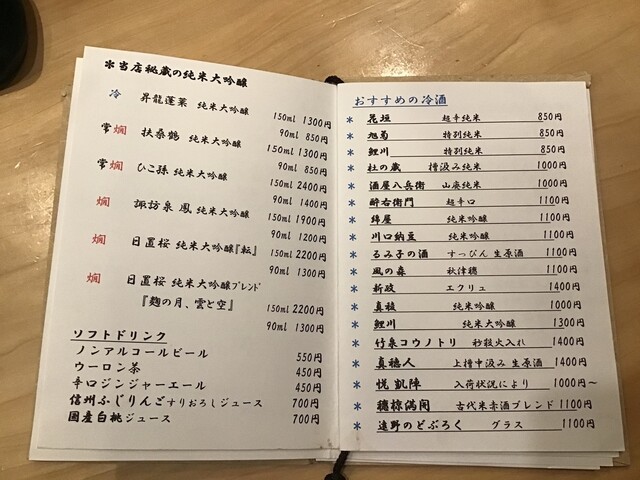 ＊当店秘蔵の純米大吟醸
冷 昇龍蓬莱 純米大吟醸
150ml 1300円
常燗 扶桑鶴 純米大吟醸 90ml 850円
150ml 1300円
常燗 ひこ孫 純米大吟醸 90ml 850円
150ml 2400円
燗 諏訪泉 鳳 純米大吟醸 90ml 1400円
150ml 1900円
燗 日置桜 純米大吟醸『転』 90ml 1200円
150ml 2200円
燗 日置桜 純米大吟醸ブレンド 90ml 1300円
『麹の月、雲と空』 150ml 2200円
90ml 1300円
ソフトドリンク
ノンアルコールビール 550円
ウーロン茶 450円
辛口ジンジャーエール 450円
信州ふじりんごすりおろしジュース 700円
国産白桃ジュース 700円
おすすめの冷酒
＊ 花垣 超辛純米 850円
＊ 旭菊 特別純米 850円
＊ 鯉川 特別純米 850円
＊ 杜の蔵 槽汲み純米 1000円
＊ 酒屋八兵衛 山廃純米 1000円
＊ 酔右衛門 超辛口 1100円
＊ 綿屋 純米吟醸 1100円
＊ 川口納豆 純米吟醸 1100円
＊ るみ子の酒 すっぴん 生原酒 1100円
＊ 風の森 秋津穂 1100円
＊ 新政 エクリュ 1400円
＊ 真稜 純米吟醸 1000円
＊ 鯉川 純米大吟醸 1300円
＊ 竹泉コウノトリ 秒殺火入れ 1400円
＊ 真穂人 上槽中汲み 生原酒 1400円
＊ 悦 凱陣 入荷状況により 1000円～
＊ 穂椋満閖 古代米赤酒ブレンド 1100円
＊ 遠野のどぶろく グラス 1100円